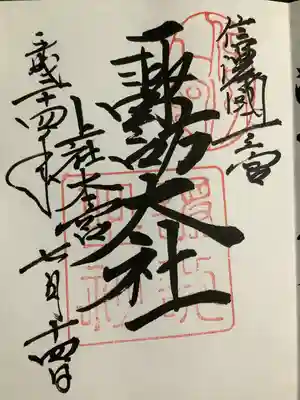 信濃國一之宮
諏訪大社
上社本宮
平成二十四年
七月二十四日